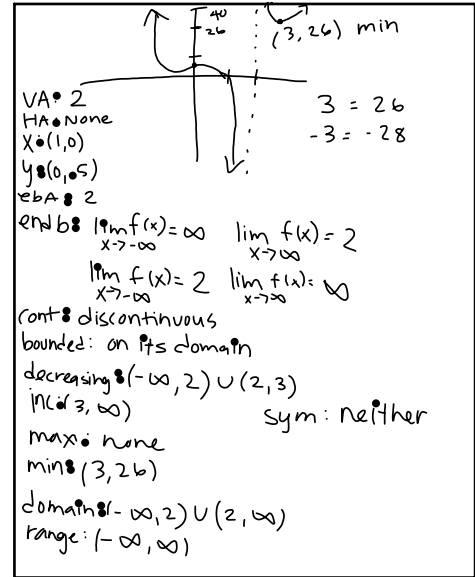 40
26
(3,26) min
VA: 2
HA: None
X: (1,0)
y: (0,.5)
ebA: 2
3 = 26
-3 = -28
endb: lim f(x) = ∞ lim f(x) = 2
x->-∞ x->∞
lim f(x) = 2 lim f(x) = ∞
x->-∞ x->∞
cont: discontinuous
bounded: on its domain
decreasing: (-∞,2) ∪ (2,3)
inc: (3,∞)
sym: neither
max: none
min: (3,26)
domain: (-∞,2) ∪ (2,∞)
range: (-∞,∞)